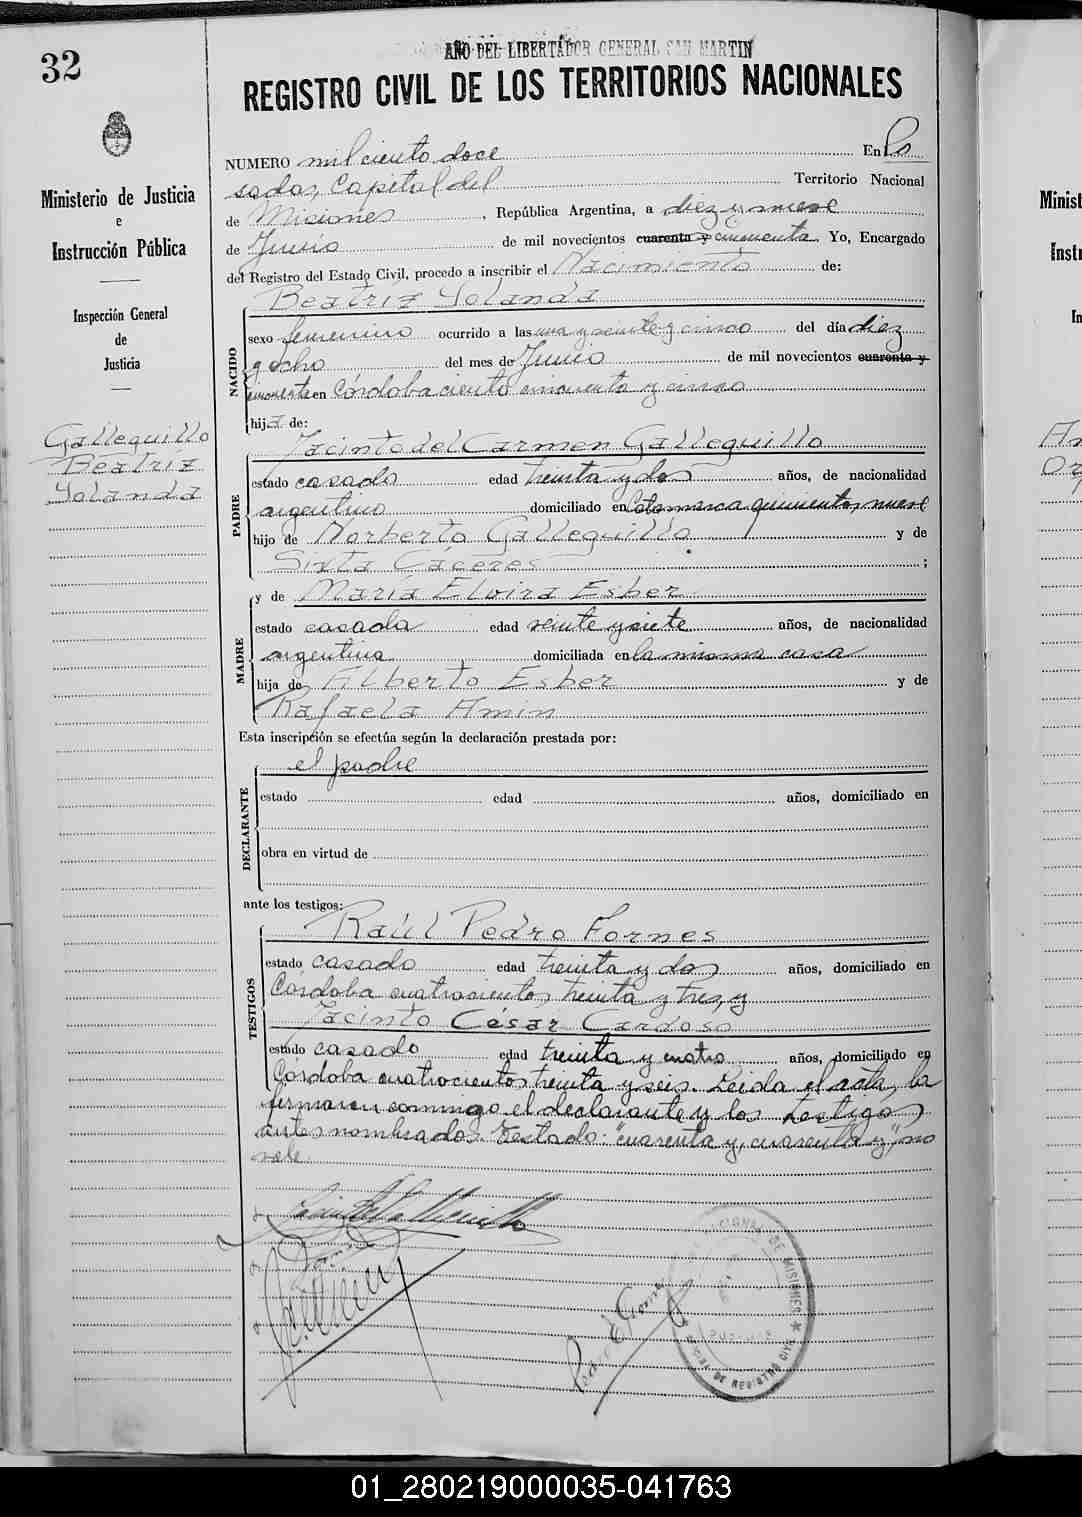 32
AÑO DEL LIBERTADOR GENERAL SAN MARTIN
REGISTRO CIVIL DE LOS TERRITORIOS NACIONALES
Ministerio de Justicia
e
Instrucción Pública
Inspección General
de
Justicia
Galleguillo
Beatriz
Yolanda
NUMERO mil ciento doce En Po
sadas, Capital del Territorio Nacional
de Misiones, República Argentina, a diez y nueve
de Junio de mil novecientos cuarenta y cincuenta. Yo, Encargado
del Registro del Estado Civil, procedo a inscribir el Nacimiento de:
Beatriz Yolanda
NACIDO
sexo femenino ocurrido a las una y veinte y cinco del día diez
y ocho del mes de Junio de mil novecientos cuarenta y
cincuenta en Córdoba ciento cincuenta y cinco
hija de:
Jacinto del Carmen Galleguillo
PADRE
estado casado edad treinta y dos años, de nacionalidad
argentino domiciliado en Catamarca quinientos nueve
hijo de Norberto Galleguillo y de
Sixta Cáceres ;
y de María Elvira Esber
MADRE
estado casada edad veinte y siete años, de nacionalidad
argentina domiciliada en la misma casa
hija de Alberto Esber y de
Rafaela Amin
Esta inscripción se efectúa según la declaración prestada por:
el padre
DECLARANTE
estado edad años, domiciliado en
obra en virtud de
ante los testigos:
Raúl Pedro Fornes
TESTIGOS
estado casado edad treinta y dos años, domiciliado en
Córdoba cuatrocientos treinta y tres, y
Jacinto César Cardoso
estado casado edad treinta y cuatro años, domiciliado en
Córdoba cuatrocientos treinta y seis. Leida el acta, la
firmaron conmigo el declarante y los testigos
antes nombrados. Testado: "cuarenta y, cuarenta y", no
vale.
DE MISIONES * REGISTRO CIVIL
Minist
Instr
In
01_280219000035-041763